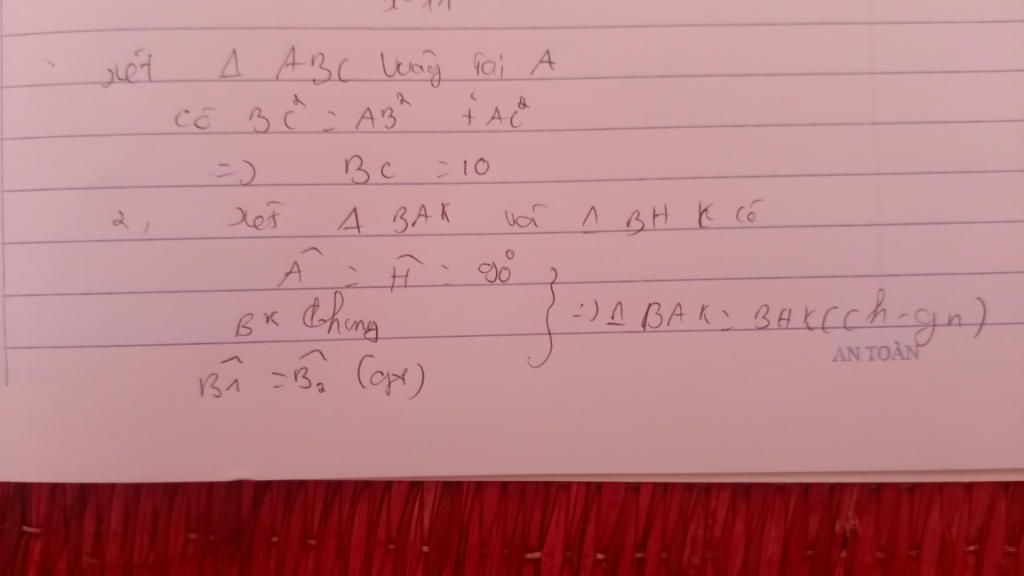 xét Δ ABC vuông tại A
có BC² = AB² + AC²
=> BC = 10
2, xét Δ BAK và Δ BHK có
Â = Ĥ = 90°
BK chung
B̂1 = B̂2 (gt)
} => Δ BAK = BHK (ch-gn)
AN TOÀN